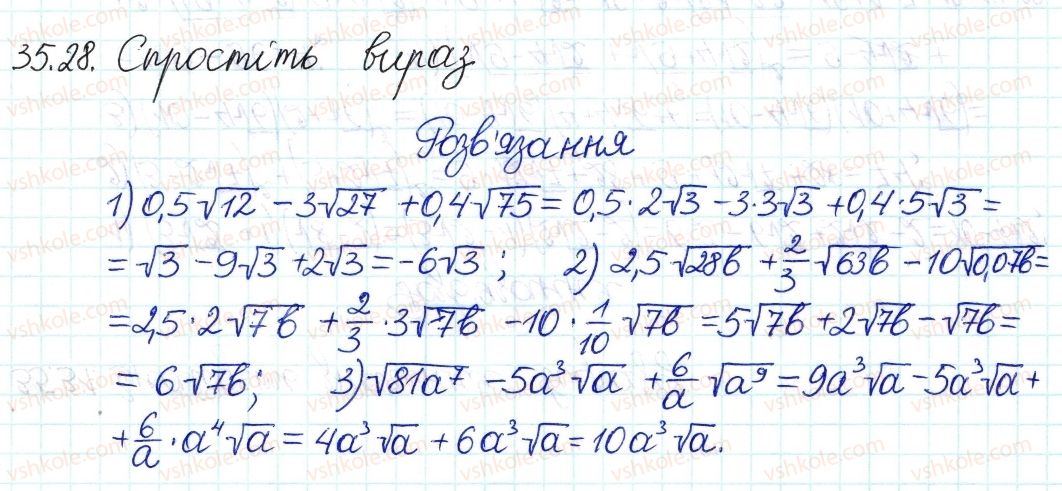 35.28. Спростіть вираз
Розв'язання
1) 0,5√12 - 3√27 + 0,4√75 = 0,5·2√3 - 3·3√3 + 0,4·5√3 =
= √3 - 9√3 + 2√3 = -6√3 ; 2) 2,5√28b + 2/3 √63b - 10√0,07b =
= 2,5·2√7b + 2/3 ·3√7b - 10 · 1/10 √7b = 5√7b + 2√7b - √7b =
= 6√7b; 3) √81a⁷ - 5a³√a + 6/a √a⁹ = 9a³√a - 5a³√a +
+ 6/a · a⁴√a = 4a³√a + 6a³√a = 10a³√a.